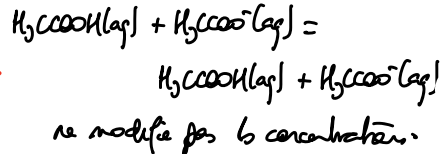 H₃CCOOH(aq) + H₃CCOO⁻(aq) =
H₃CCOOH(aq) + H₃CCOO⁻(aq)
ne modifie pas les concentrations.